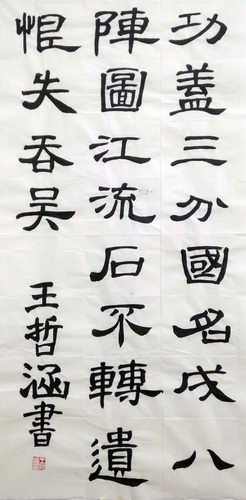 功盖三分國名成八
陣圖江流石不轉遺
恨失吞吴
王哲涵書